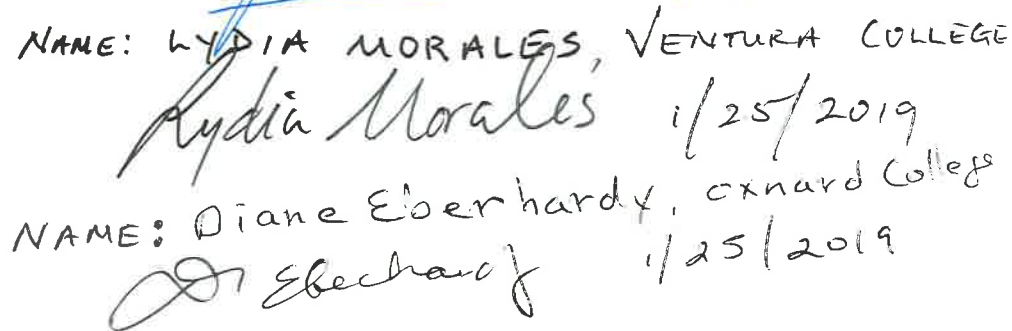 NAME: LYDIA MORALES, VENTURA COLLEGE
Lydia Morales 1/25/2019
NAME: Diane Eberhardy, Oxnard College
Di Eberhardy 1/25/2019